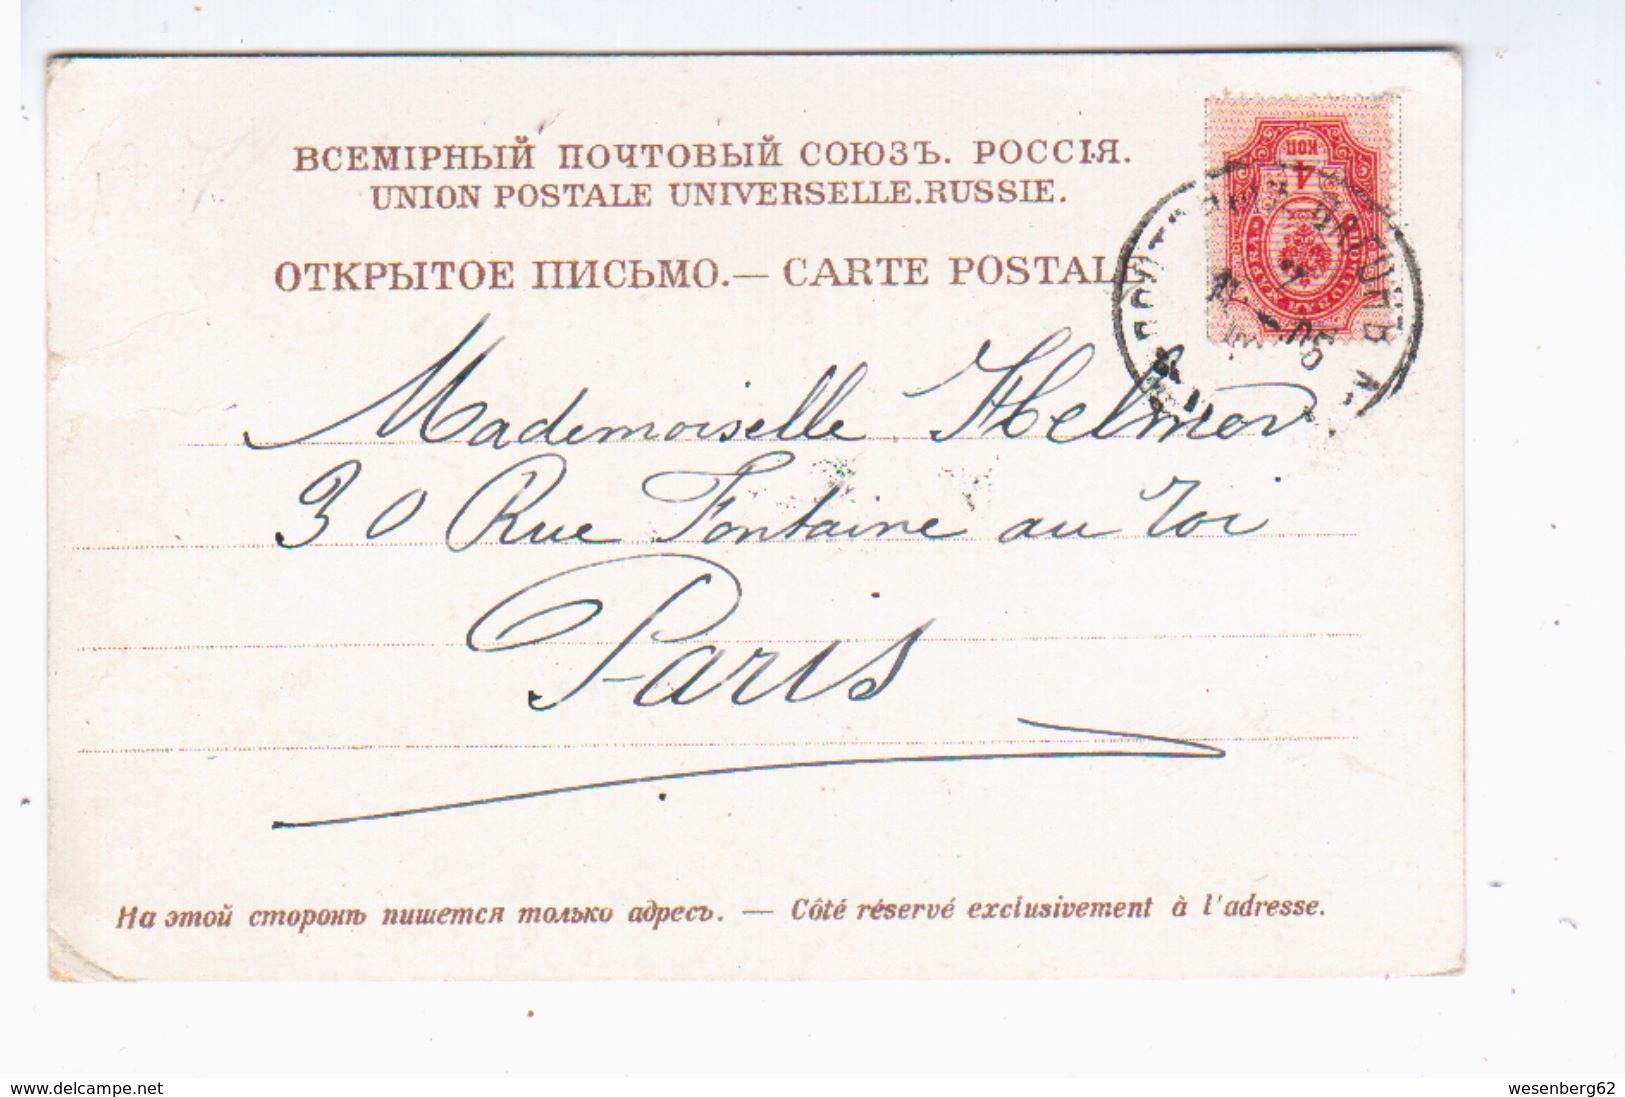 ВСЕМІРНЫЙ ПОЧТОВЫЙ СОЮЗЪ. РОССІЯ.
UNION POSTALE UNIVERSELLE. RUSSIE.
ОТКРЫТОЕ ПИСЬМО. — CARTE POSTALE
4
КОП
05
Mademoiselle Helmer
30 Rue Fontaine au roi
Paris
На этой сторонѣ пишется только адресъ. — Côté réservé exclusivement à l'adresse.
www.delcampe.net
wesenberg62